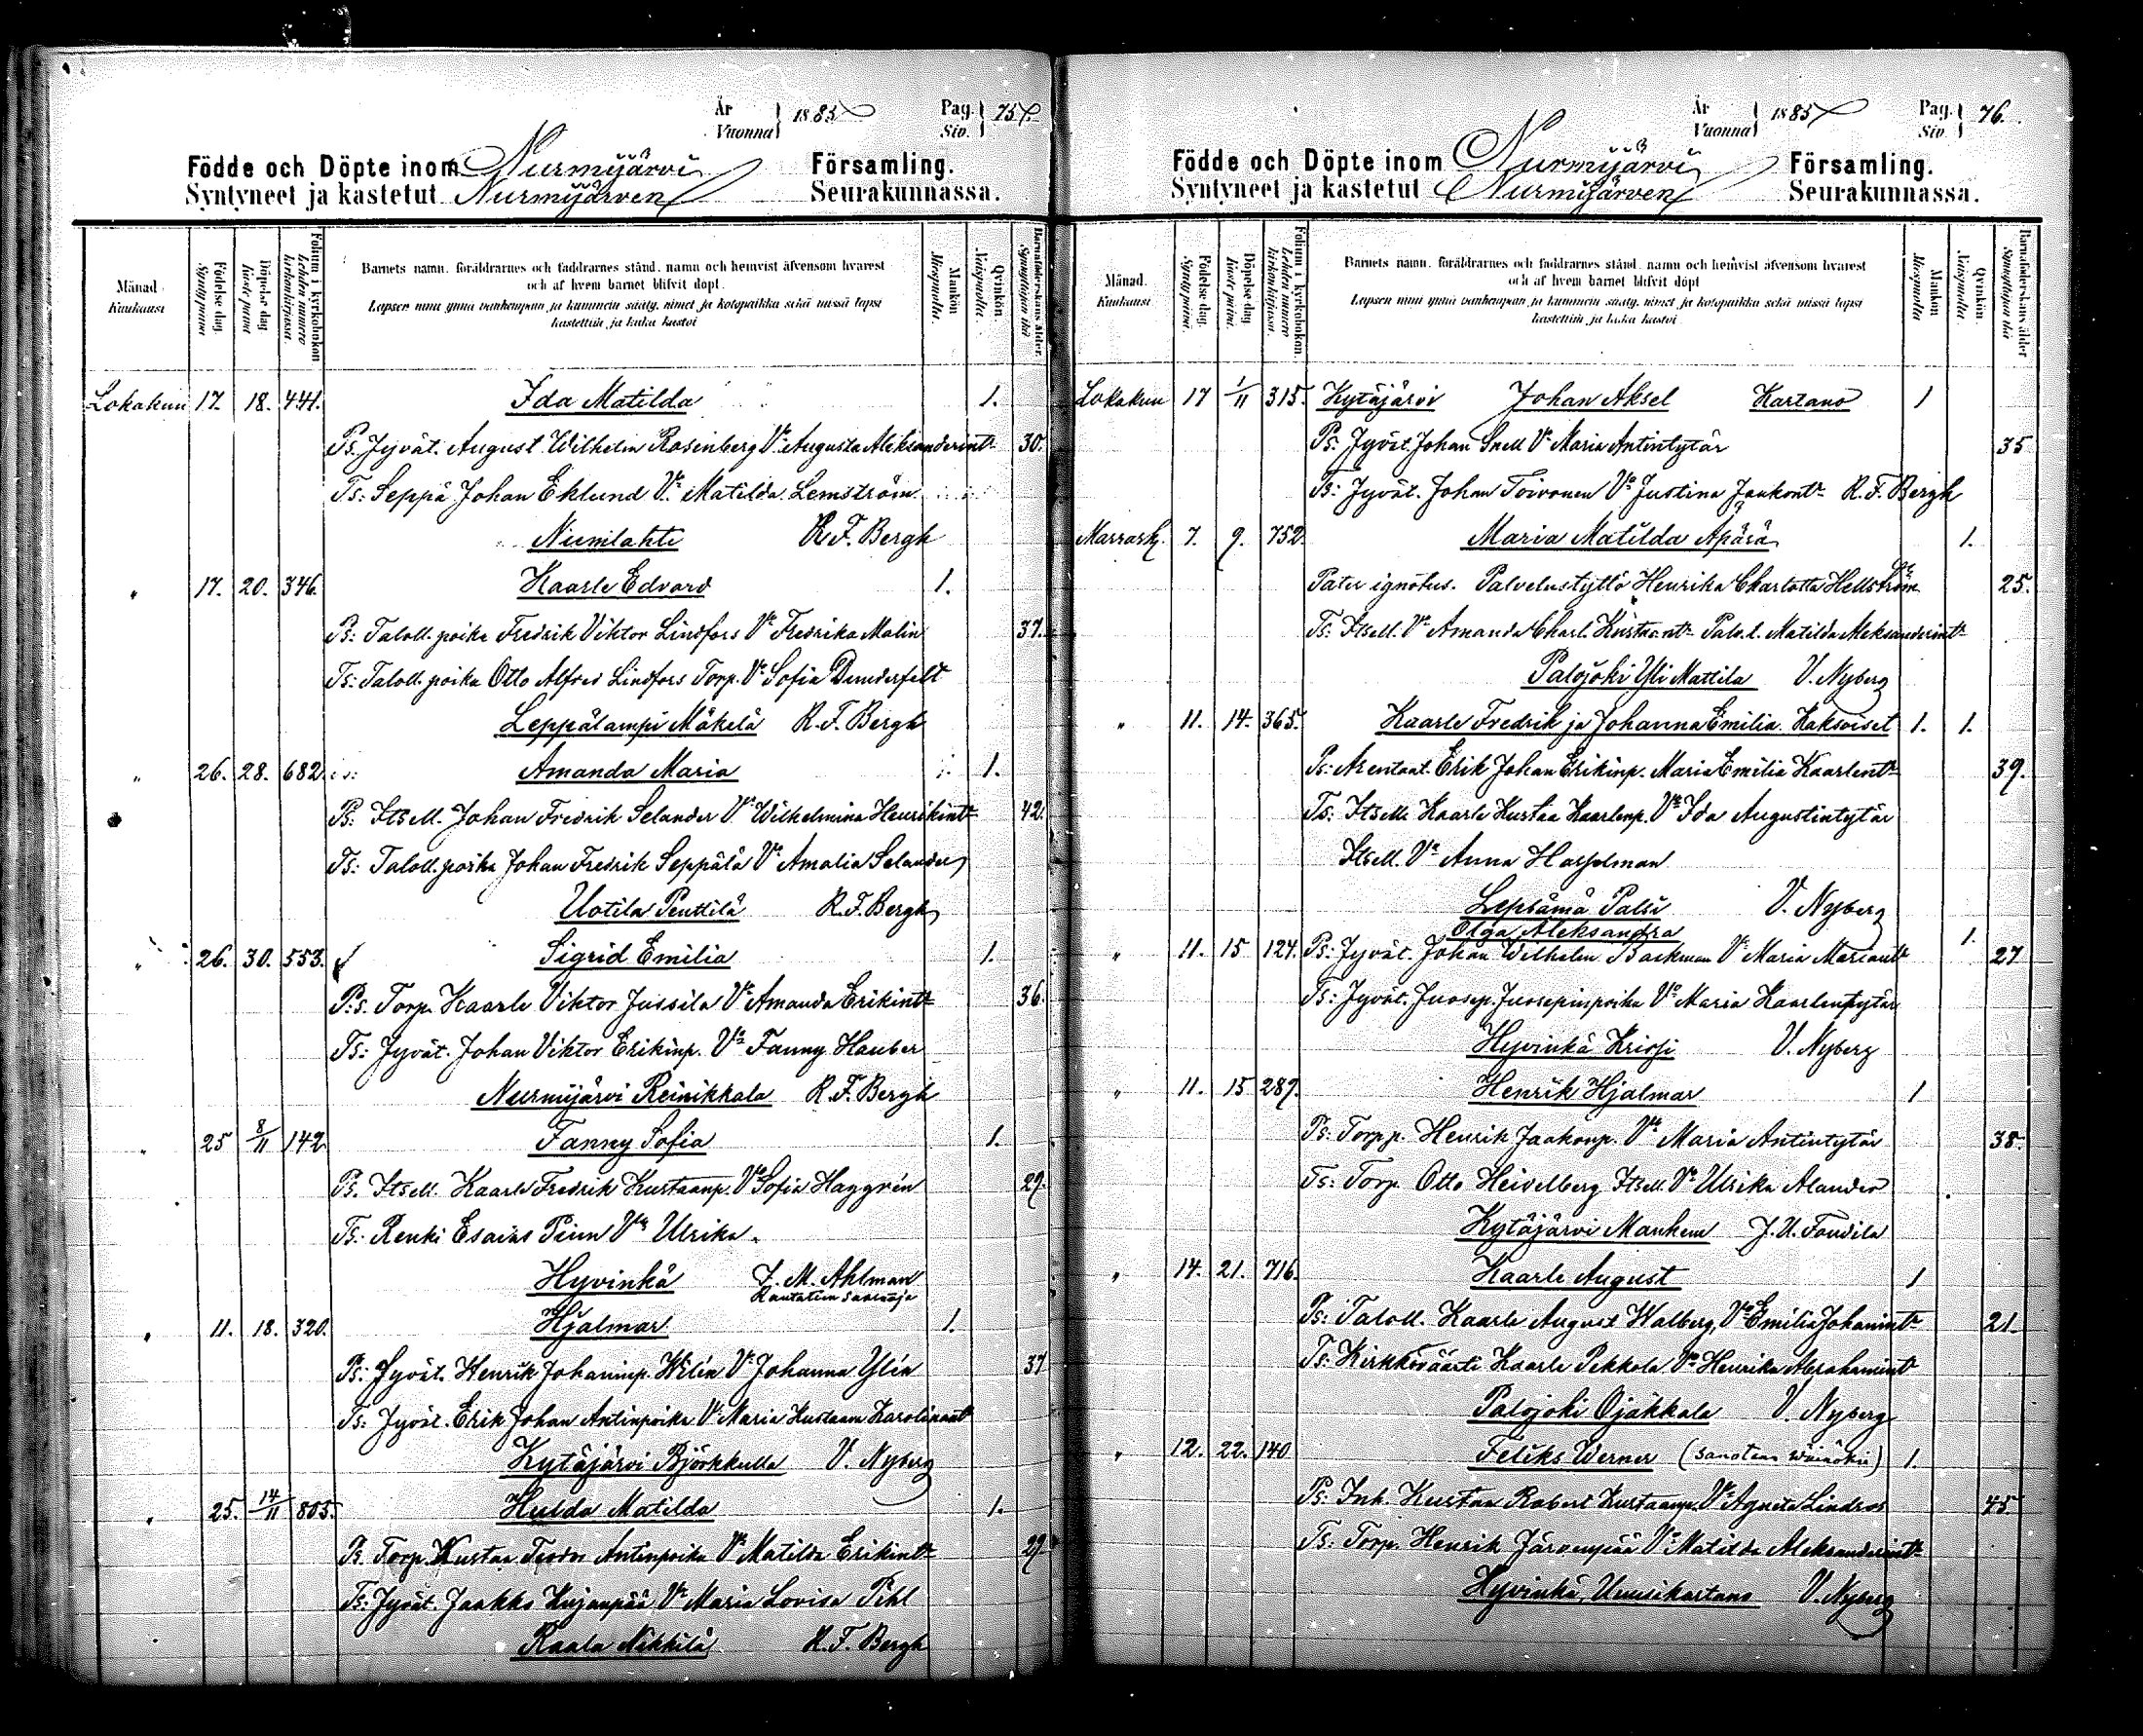 År
Vuonna } 1885
Pag.
Siv. } 75
Födde och Döpte inom Nurmijärvi Församling.
Syntyneet ja kastetut Nurmijärven Seurakunnassa.
Månad. Kuukausi
Födelse dag. Syntypäivä
Döpelse dag Kastepäivä
Folium i kyrkoboken Lehden numero kirkonkirjassa.
Barnets namn, föräldrarnes och faddrarnes stånd, namn och hemvist äfvensom hvarest
och af hvem barnet blifvit döpt.
Lapsen nimi ynnä vanhempain ja kummein sääty, nimet ja kotopaikka sekä missä lapsi
kastettiin ja kuka kastoi
Mankön Miespuolta.
Qvinkön Vaimpuolta.
Barnaföderskans ålder. Synnyttäjän ikä
Lokakuu 17. 18. 441. Ida Matilda 1.
Ps. Jyvät. August Wilhelm Rosenberg Vo Augusta Aleksanderintr 30.
Ts: Seppä Johan Eklund Vo Matilda Lemström
Numlahti R. F. Bergh
" 17. 20. 346. Kaarle Edvard 1.
Ps: Taloll. poika Fredrik Viktor Lindfors Vo Fredrika Malin 37.
Ts: Taloll. poika Otto Alfred Lindfors Torp. Vo Sofia Dunderfelt
Leppälampi Mäkelä R. F. Bergh
" 26. 28. 682. Amanda Maria 1.
Ps. Itsell. Johan Fredrik Selander Vo Wilhelmina Henrikintr 42.
Ts: Taloll. poika Johan Fredrik Seppälä Vo Amalia Selander
Uotila Penttilä R. F. Bergh
" 26. 30. 553. Sigrid Emilia 1.
Ps. Torp. Kaarle Viktor Jussila Vo Amanda Erikintr 36.
Ts: Jyvät. Johan Viktor Erikinp. Vo Fanny Hauber
Nurmijärvi Reinikkala R. F. Bergh
" 25 8/11 142 Fanny Sofia 1.
Ps. Itsell. Kaarle Fredrik Kustaanp. Vo Sofia Haggrén 29.
Ts. Renki Esaias Piun Vo Ulrika
Hyvinkä J. M. Ahlman
Rautatien saarnaja
" 11. 18. 320. Hjalmar 1.
Ps: Jyvät. Henrik Johaninp. Wilén Vo Johanna Ylén 37
Ts: Jyvät. Erik Johan Antinpoika Vo Maria Kustaava Karolinantr
Kytäjärvi Björkkulla V. Nyberg
" 25. 14/11 805. Hulda Matilda 1.
Ps Torp. Kustaa Teodor Antinpoika Vo Matilda Erikintr 29.
Ts: Jyvät. Jaakko Kujanpää Vo Maria Lovisa Pihl
Raala Nikkilä R. F. Bergh
År
Vuonna } 1885
Pag.
Siv. } 76.
Födde och Döpte inom Nurmijärvi Församling.
Syntyneet ja kastetut Nurmijärven Seurakunnassa.
Månad. Kuukausi.
Födelse dag. Syntypäivä.
Döpelse dag. Kastepäivä.
Folium i kyrkoboken. Lehden numero kirkonkirjassa.
Barnets namn, föräldrarnes och faddrarnes stånd, namn och hemvist äfvensom hvarest
och af hvem barnet blifvit döpt
Lapsen nimi ynnä vanhempain ja kummein sääty, nimet ja kotopaikka sekä missä lapsi
kastettiin ja kuka kastoi
Mankön Miespuolta
Qvinkön Vaimpuolta.
Barnaföderskans ålder Synnyttäjän ikä
Lokakuu 17 1/11 315. Kytäjärvi Johan Aksel Kartano 1
Ps: Jyvät. Johan Snell Vo Maria Antintytär 35
Ts: Jyvät. Johan Toivonen Vo Justina Jaakontr R. F. Bergh
Marrask. 7. 9. 752. Maria Matilda Äpärä 1.
Pater ignotus. Palvelustyttö Henrika Charlotta Hellström 25.
Ts: Itsell. Vo Amanda Charl. Kustaantr Palv. t. Matilda Aleksanderintr
Palojoki Yli Mattila V. Nyberg
" 11. 14. 365. Kaarle Fredrik ja Johanna Emilia Kaksoiset 1. 1.
Ps: Arentaat. Erik Johan Erikinp. Maria Emilia Kaarlentr 39.
Ts: Itsell. Kaarle Kustaa Kaarlenp. Vo Ida Augustintytär
Itsell. Vo Anna Hasselman
Lepsämä Palsi V. Nyberg
Olga Aleksandra 1.
" 11. 15 124. Ps: Jyvät. Johan Wilhelm Backman Vo Maria Mariantr 27
Ts: Jyvät. Juosep. Juosepinpoika Vo Maria Kaarlentytär
Hyvinkä Krissi V. Nyberg
" 11. 15 287. Henrik Hjalmar 1
Ps: Torpp. Henrik Jaakonp. Vo Maria Antintytär 38.
Ts: Torp. Otto Heidelberg Itsell. Vo Ulrika Alander
Kytäjärvi Manhem J. U. Fondila
" 14. 21. 716. Kaarle August 1
Ps: Taloll. Kaarle August Walberg, Vo Emilia Johanintr 21.
Ts: Kirkkoväärti Kaarle Pekkola Vo Henrika Abrahamintr
Palojoki Ojakkala V. Nyberg
" 12. 22. 140 Feliks Werner (sanotaan Wäinöksi) 1.
Ps: Inh. Kustaa Robert Kustaanp. Vo Agneta Lindroos 45.
Ts: Torp. Henrik Järvenpää Vo Matilda Aleksanderintr
Hyvinkä, Uusikartano V. Nyberg